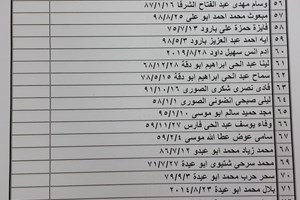 ٥٦ وسام مهدى عبد الفتاح الشرفا ٨٧/١/١٦
٥٧ مبعوث محمد احمد ابو على ٩٨/٨/٢٥
٥٨ فايزة حمزة على بارود ٧٥/٧/١٤
ايه احمد عبد العزيز بارود ٩٨/٥/٣
٦٠ ادم انس سهيل داود ٢٠١٩/٨/٢٨
٦١ لينا عبد الحى ابراهيم ابو دقة ٦٨/١٢/٢٨
٦٢ سماح عبد الحى ابراهيم ابو دقة ٧٨/٥/١٥
٦٣ فادى نصرى شكرى الصورى ٩١/١٠/١٦
٦٤ ليلى صبحى انضولى الصورى ٥٨/١/١
٦٥ مجد حميد سالم ابو موسى ٩٥/١/١٠
٦٦ وفاء يوسف عبد الحى فارس ٥٩/١١/٢٧
٦٧ سامى عوض عطا الله موسى ٥٩/٢/٤
٦٨ محمد زياد محمد ابو عيدو ٨٦/٧/١٢
٦٩ محمد سرحى شتيوى ابو عيدة ٧١/٧/٢٧
٧٠ سحر حرب محمد ابو عيدة ٧٩/٩/٣
٧١ بلال محمد ابو عيدة ٢٠١٤/٨/٢٣